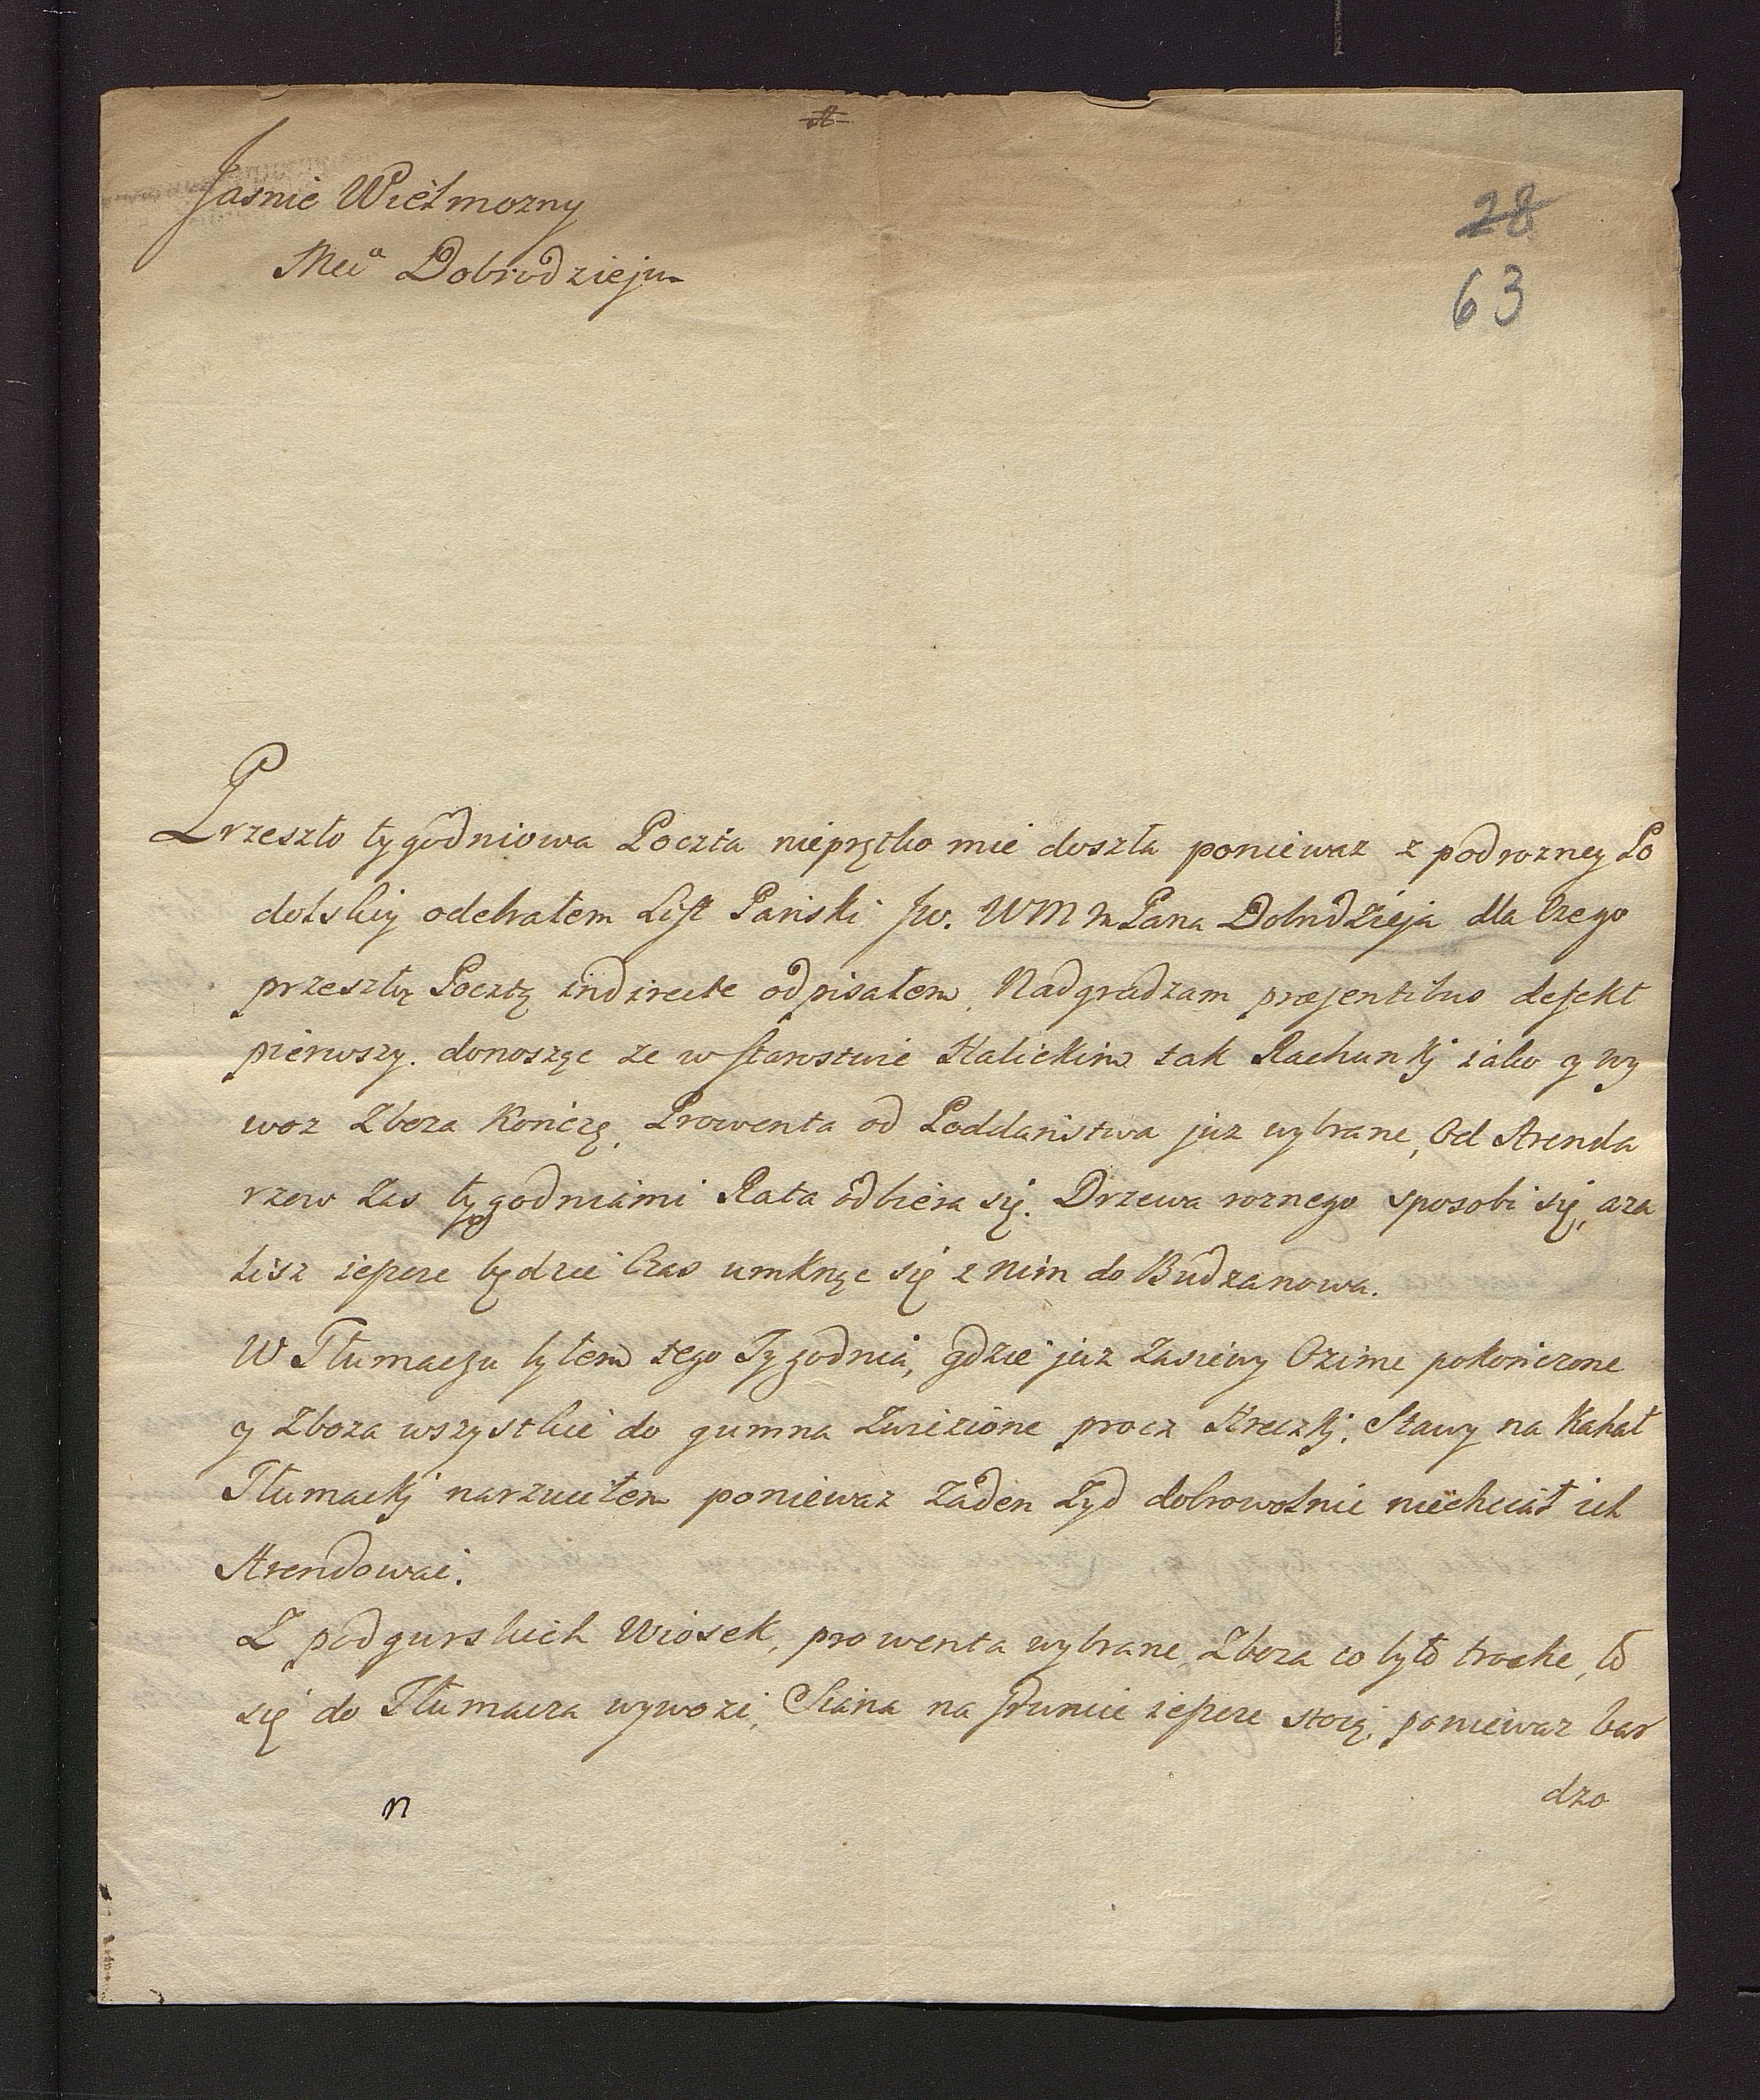 Jasnie Wielmozny
Mci<sup>a</sup> Dobrodzieju
28
63
Przeszło tygodniowa Poczta nieprętko mie doszła poniewaz z podrozney Po
dolskiey odebrałem List Pański Jw. WM M Pana Dobrodzieja dla czego
przeszłą Pocztą indirecte odpisałem. Nadgradzam præsentibus defekt
pierwszy. donosząc ze w starostwie Halickim tak Rachunkj iako y wy
woz Zboza kończę. Prowenta od Poddaństwa juz wybrane, Od Arenda
rzow zas tygodniami Rata odbiera się. Drzewa roznego sposobi się, aza
lisz iepsze będzie Czas umknąc się z nim do Budzanowa.
W Tłumaczu byłem tego Tygodnia, gdzie juz Zasiewy Ozime pokończone
y Zboza wszystkie do gumna Zwiezione procz Hreczkj. Stawy na Kahał
Tłumackj narzuciłem poniewaz Zaden Zyd dobrowolnie niechciał ich
Arendowac.
Z podgurskich Wiosek, prowenta wybrane, Zboza co było troche, to
się do Tłumacza wywozi, Siana na gruncie iepsze stoią, poniewaz bar
dzo
n